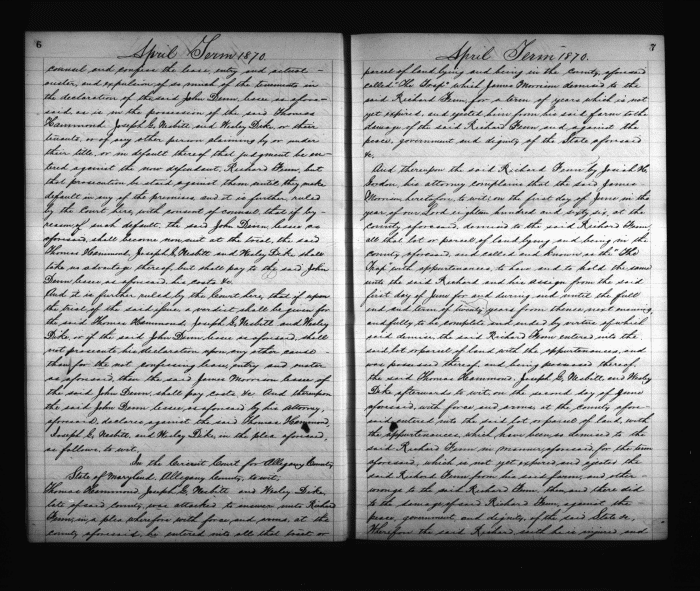 6
April Term 1870.
counsel, and confess the lease, entry and actual
ouster, and expulsion of so much of the tenements in
the declaration of the said John Denn, lessee as afore-
said as is in the possession of the said Thomas
Hammond, Joseph G. Nesbitt, and Wesley Dike, or their
tenants, or of any other person claiming by or under
their title, or in default thereof that judgment be en-
tered against the now defendant, Richard Fenn, but
that prosecution be staid against them until they make
default in any of the premises and it is further ruled
by the Court here, with consent of counsel that if by
reason of such default, the said John Denn, lessee as
aforesaid, shall become non suit at the trial, the said
Thomas Hammond, Joseph G. Nesbitt and Wesley Dike shall
take no advantage thereof but shall pay to the said John
Denn lessee, as aforesaid, his costs &c.
And it is further ruled by the Court here, that if upon
the trial of the said issue, a verdict shall be given for
the said Thomas Hammond, Joseph G. Nesbitt and Wesley
Dike, or if the said John Denn, lessee as aforesaid, shall
not prosecute his declaration upon any other cause
than for the not confessing lease, entry and ouster
as aforesaid, then the said James Morrison lessor of
the said John Denn, shall pay costs &c And thereupon
the said John Denn lessee, as aforesaid by his attorney,
aforesaid, declares against the said Thomas Hammond,
Joseph G. Nesbitt, and Wesley Dike, in the plea aforesaid,
as follows, to wit,
In the Circuit Court for Allegany County
State of Maryland, Allegany County, to wit,
Thomas Hammond, Joseph G. Nesbitt and Wesley Dike,
late of said county, was attached to answer unto Richard
Fenn, in a plea, wherefore with force, and arms, at the
county aforesaid, he entered into all that tract or
7
April Term 1870.
parcel of land lying and being in the County, aforesaid
called "The Gap" which James Morrison demised to the
said Richard Fenn for a term of years which is not
yet expired, and ejected him from his said farm to the
damage of the said Richard Fenn, and against the
peace, government and dignity of the State aforesaid
&c.
And thereupon the said Richard Fenn by Josiah H.
Gordon, his attorney complains that the said James
Morrison heretofore, to wit on the first day of June in the
year of our Lord eighteen hundred and sixty six, at the
county aforesaid, demised to the said Richard Fenn,
all that lot or parcel of land lying and being in the
county, aforesaid, and called and known, as the "The
Gap" with appurtenances, to have and to hold the same
unto the said Richard and his assigns from the said
first day of June for and during and until the full
end and term of twenty years from thence, next ensuing
and fully, to be complete and ended by virtue of which
said demise, the said Richard Fenn entered into the
said lot or parcel of land with the appurtenances, and
was possessed thereof and being possessed thereof
the said Thomas Hammond, Joseph G. Nesbitt and Wesley
Dike afterwards to wit on the second day of June
aforesaid, with force and arms, at the county afore-
said entered into the said lot or parcel of land, with
the appurtenances, which have been, so demised to the
said Richard Fenn in manner, aforesaid for the term
aforesaid, which is not yet expired, and ejected the
said Richard Fenn, from his said farm, and other
wrongs to the said Richard Fenn, then and there did
to the damage of said Richard Fenn, against the
peace, government and dignity, of the said State &c.
Wherefore the said Richard, saith he is injured and